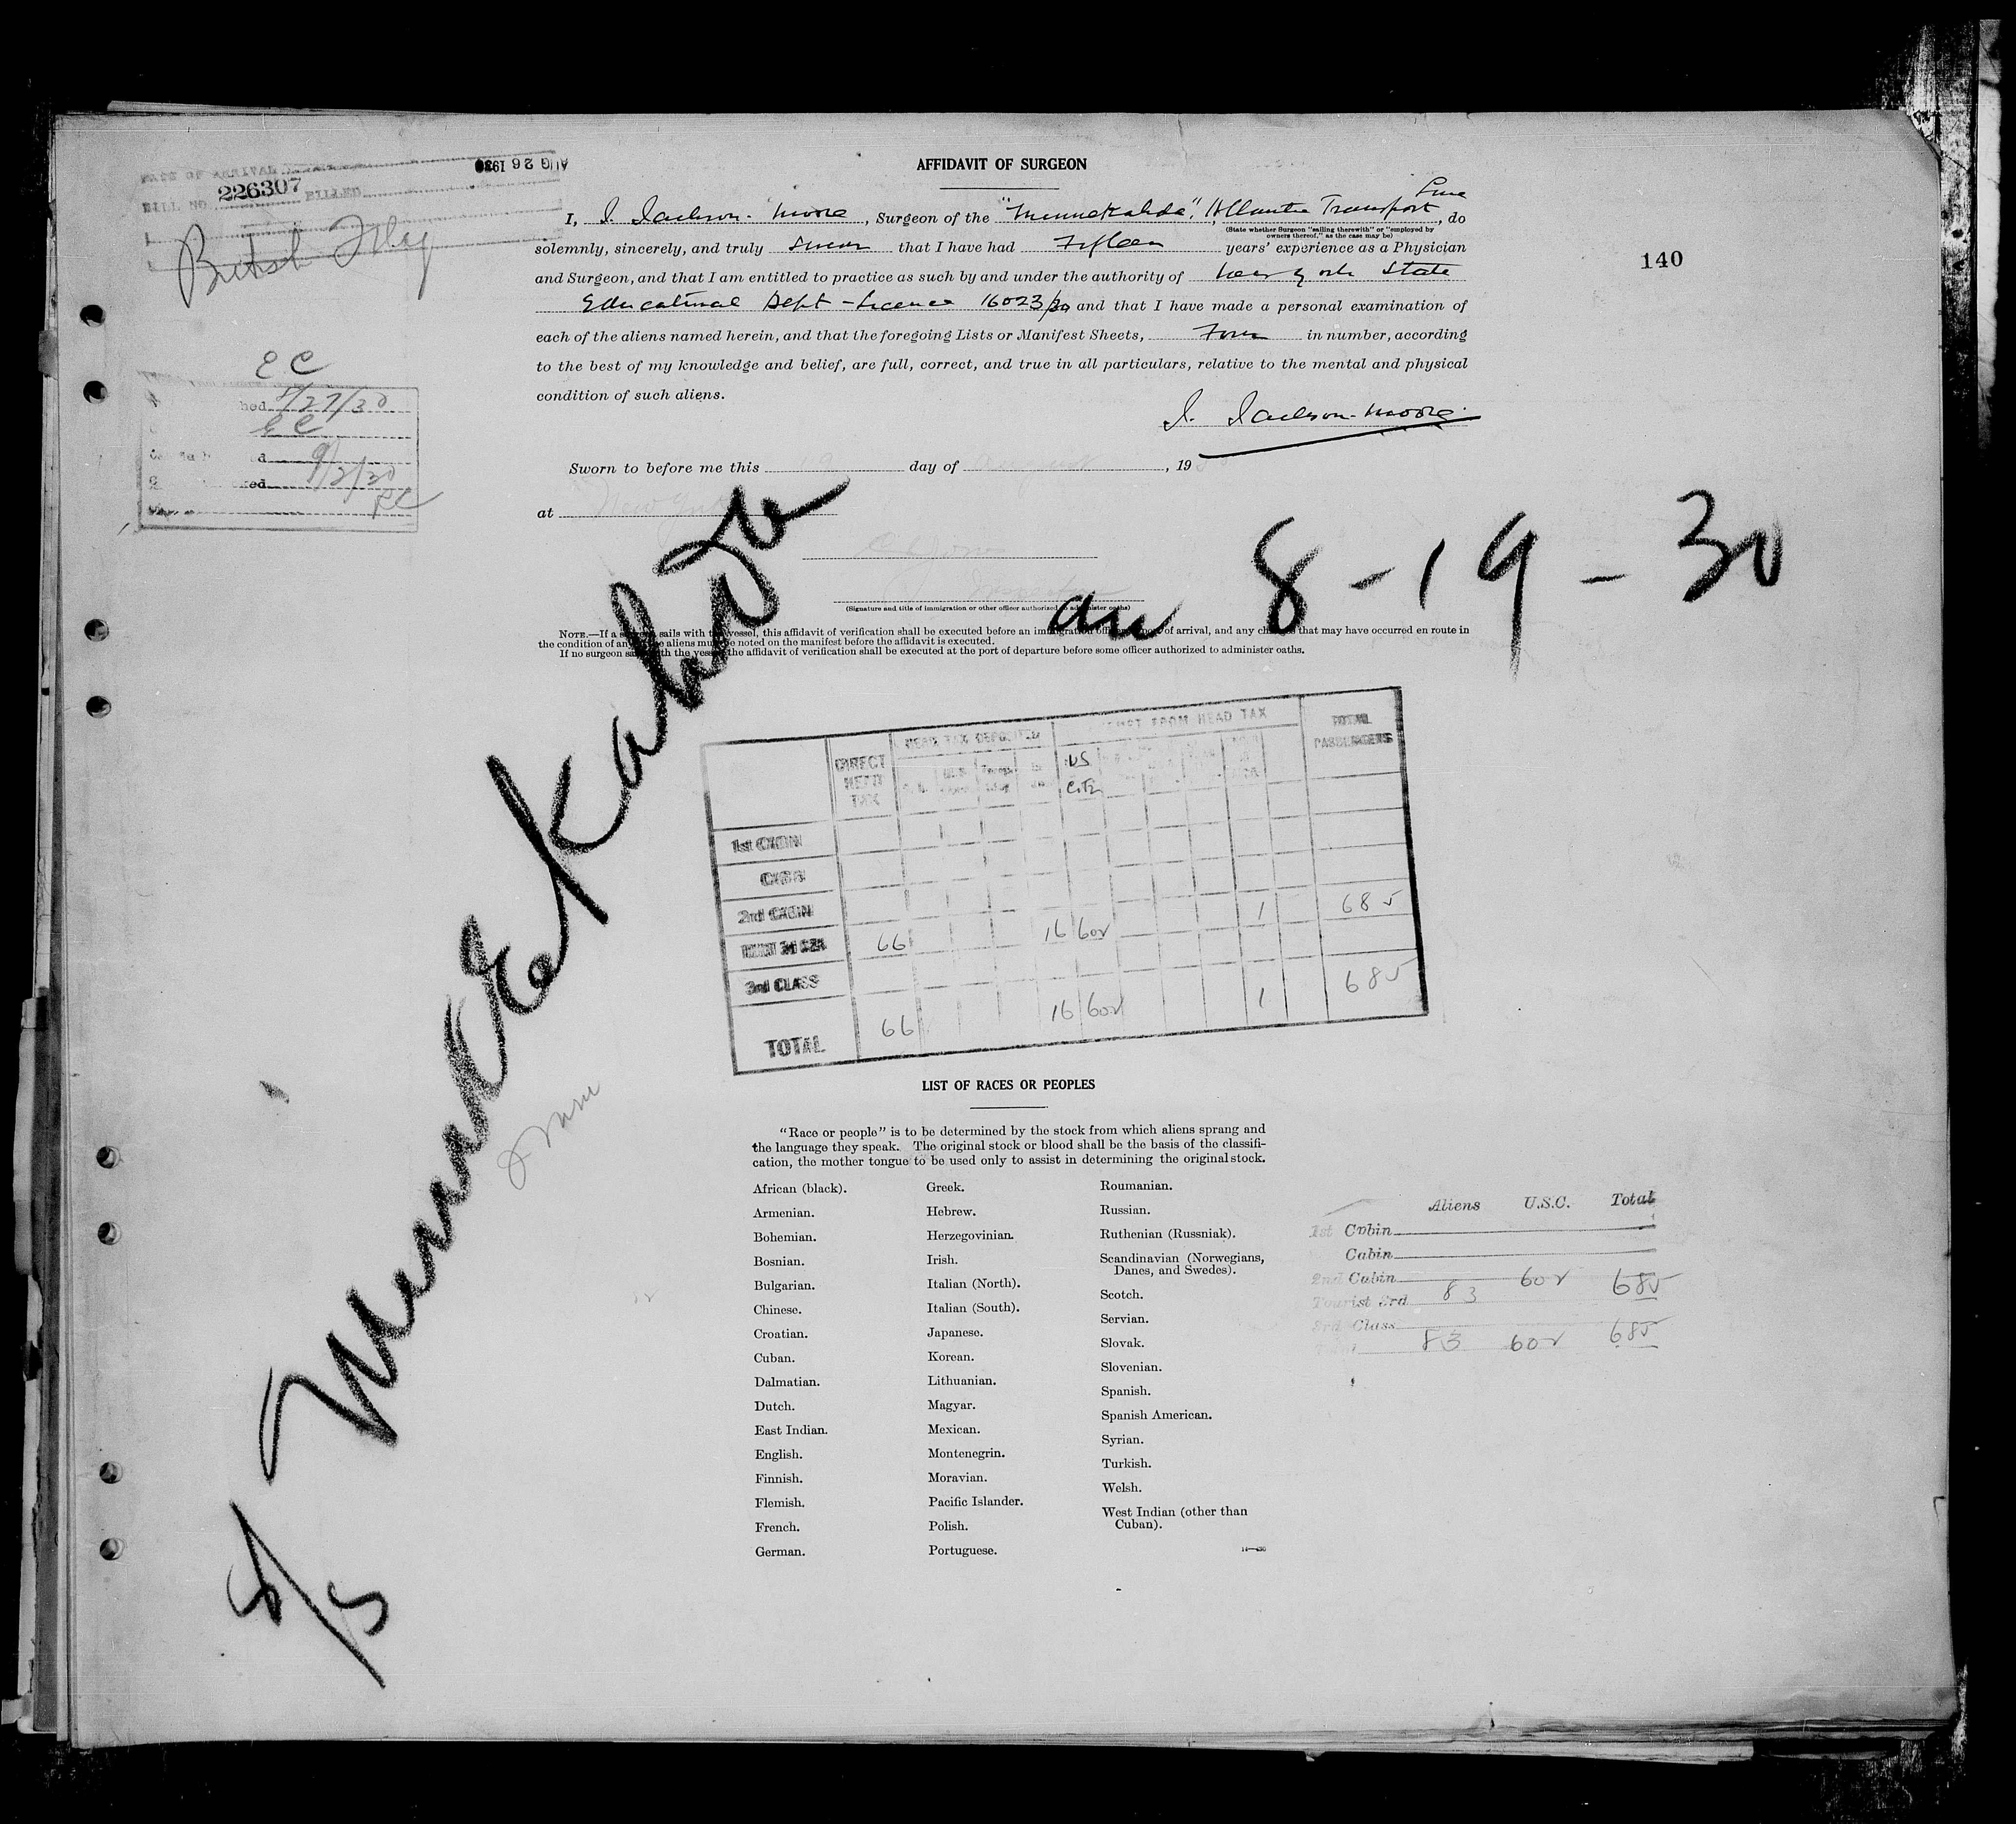 AUG 26 1930
AFFIDAVIT OF SURGEON
DATE OF ARRIVAL
BILL NO. 226307 BILLED
British Flag
140
I, I. Jackson-Moore, Surgeon of the "Minnekahda", Atlantic Transport Line, do
(State whether Surgeon "sailing therewith" or "employed by
owners thereof," as the case may be)
solemnly, sincerely, and truly swear that I have had Fifteen years' experience as a Physician
and Surgeon, and that I am entitled to practice as such by and under the authority of New York State
Educational Dept - Licence 16023/20 and that I have made a personal examination of
each of the aliens named herein, and that the foregoing Lists or Manifest Sheets, Four in number, according
to the best of my knowledge and belief, are full, correct, and true in all particulars, relative to the mental and physical
condition of such aliens.
I. Jackson-Moore.
EC
hed /27/30
EC
d 9/2/30
ed
EC
Sworn to before me this 19 day of August, 1930
at New York
(Signature and title of immigration or other officer authorized to administer oaths)
arr 8-19-30
NOTE.—If a surgeon sails with the vessel, this affidavit of verification shall be executed before an immigration officer at port of arrival, and any changes that may have occurred en route in
the condition of any of the aliens must be noted on the manifest before the affidavit is executed.
If no surgeon sails with the vessel, the affidavit of verification shall be executed at the port of departure before some officer authorized to administer oaths.
S/S Minnekahda
DIRECT HEAD TAX
HEAD TAX DEPOSITED
EXEMPT FROM HEAD TAX
TOTAL PASSENGERS
US Citz
1st CABIN
CABIN
2nd CABIN
TOURIST 3rd CZN 66 16 602 1 685
3rd CLASS
TOTAL 66 16 602 1 685
LIST OF RACES OR PEOPLES
"Race or people" is to be determined by the stock from which aliens sprang and
the language they speak. The original stock or blood shall be the basis of the classifi-
cation, the mother tongue to be used only to assist in determining the original stock.
African (black).
Armenian.
Bohemian.
Bosnian.
Bulgarian.
Chinese.
Croatian.
Cuban.
Dalmatian.
Dutch.
East Indian.
English.
Finnish.
Flemish.
French.
German.
Greek.
Hebrew.
Herzegovinian.
Irish.
Italian (North).
Italian (South).
Japanese.
Korean.
Lithuanian.
Magyar.
Mexican.
Montenegrin.
Moravian.
Pacific Islander.
Polish.
Portuguese.
Roumanian.
Russian.
Ruthenian (Russniak).
Scandinavian (Norwegians,
Danes, and Swedes).
Scotch.
Servian.
Slovak.
Slovenian.
Spanish.
Spanish American.
Syrian.
Turkish.
Welsh.
West Indian (other than
Cuban).
Aliens U.S.C. Total
1st Cabin
Cabin
2nd Cabin
Tourist 3rd 83 602 685
3rd Class
Total 83 602 685